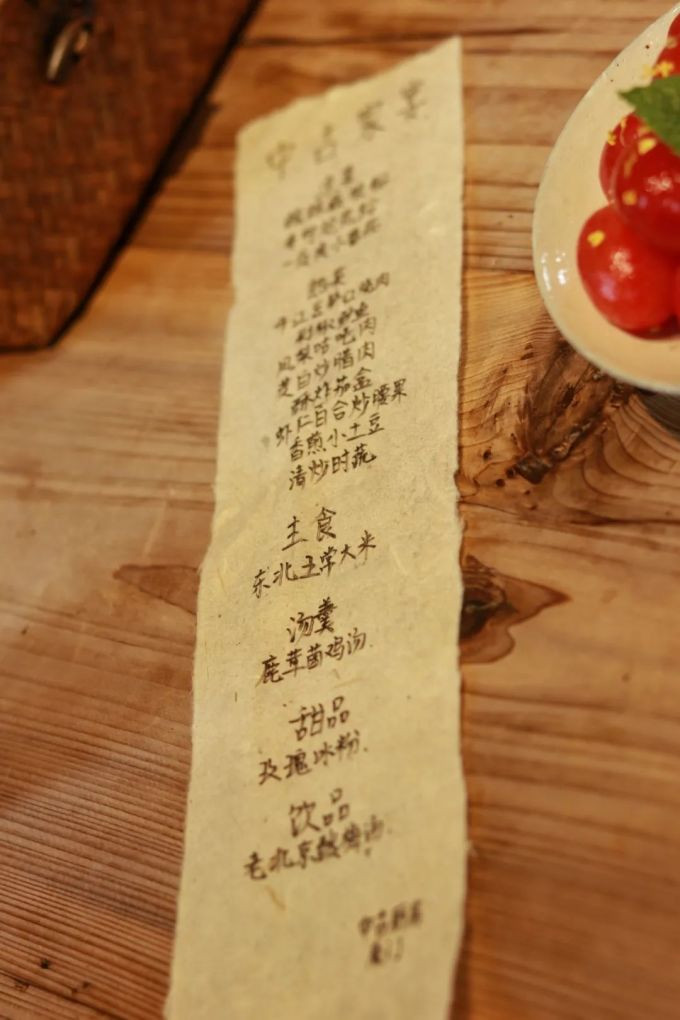 中古家宴
凉菜
热菜
剁椒鲈鱼
凤梨咕咾肉
茭白炒腊肉
酥炸茄盒
虾仁百合炒腰果
香煎小土豆
清炒时蔬
主食
东北五常大米
汤羹
鹿茸菌鸡汤
甜品
玫瑰冰粉
饮品
老北京酸梅汤